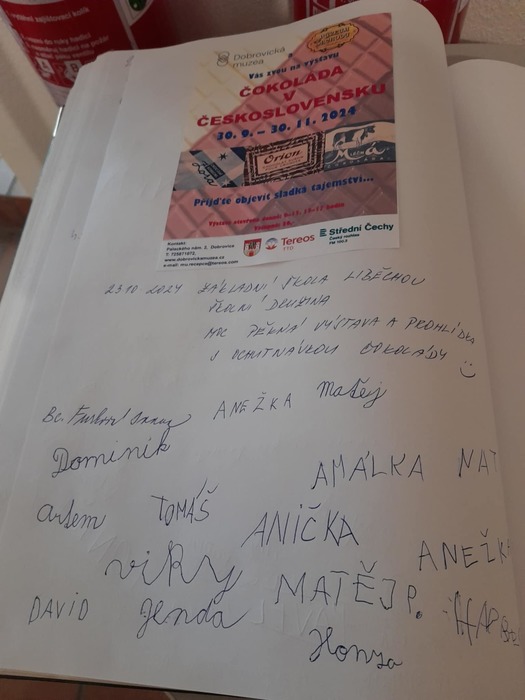 Dobrovická
muzea
Vás zvou na výstavu
ČOKOLÁDA
V
ČESKOSLOVENSKU
30. 9. – 30. 11. 2024
Orion
Přijďte objevit sladká tajemství...
Kontakt
Palackého nám. 2, Dobrovice
www.dobrovickamuzea.cz
e-mail: mu.recepce@tereos.com
Tereos
TTD
Střední Čechy
23 10 2024 ZÁKLADNÍ ŠKOLA LIBĚCHOV
ŠKOLNÍ DRUŽINA
MOC PĚKNÁ VÝSTAVA A PROHLÍDKA
S OCHUTNÁVKOU ČOKOLÁDY
Bc.
ANEŽKA
Matěj
Dominik
AMÁLKA
NAT
Artem
TOMÁŠ
ANIČKA
ANEŽK
Viky
MATĚJ P.
DAVID
Jenda
Honza